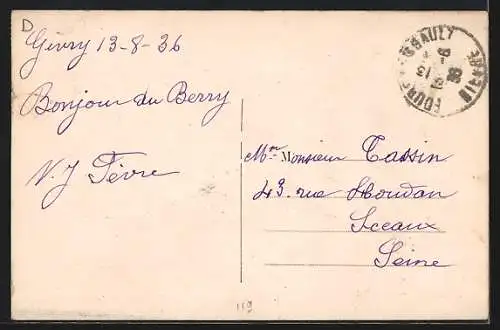 D
Gevry 13-8-36
Bonjour du Berry
V. J Fèvre
Mr Monsieur Tassin
43. rue Houdan
Sceaux
Seine
119
NIEVRE
13
36